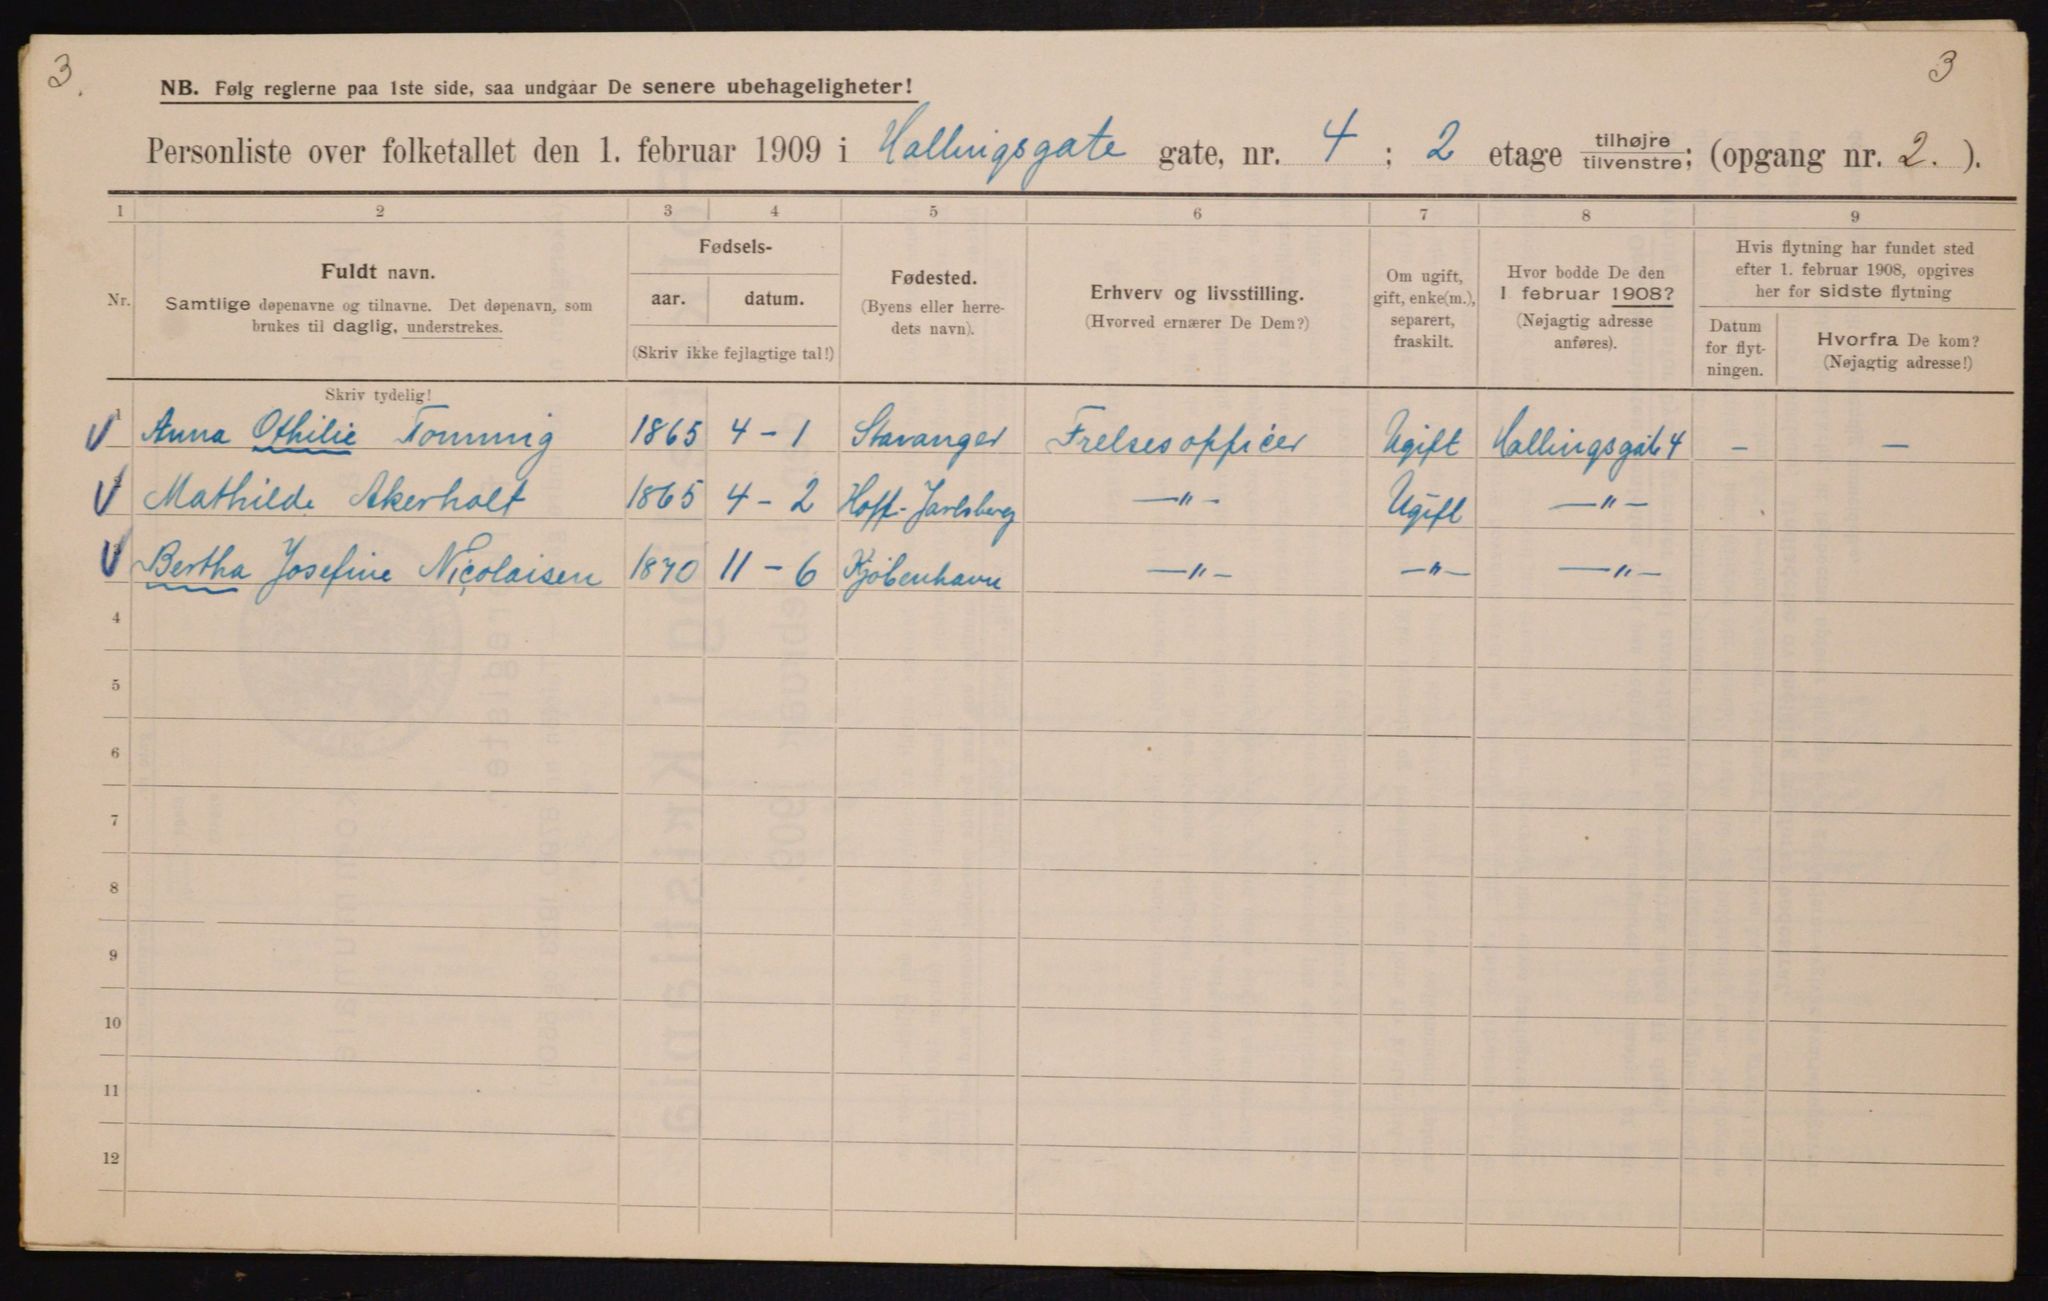 3.
3
NB. Følg reglerne paa 1ste side, saa undgaar De senere ubehageligheter!
Personliste over folketallet den 1. februar 1909 i Hallingsgate gate, nr. 4 ; 2 etage tilhøjre tilvenstre; (opgang nr. 2. ).
1 2 3 4 5 6 7 8 9
Nr.
Fuldt navn.
Samtlige døpenavne og tilnavne. Det døpenavn, som
brukes til daglig, understrekes.
Skriv tydelig!
Fødsels-
aar. datum.
(Skriv ikke fejlagtige tal!)
Fødested.
(Byens eller herre-
dets navn).
Erhverv og livsstilling.
(Hvorved ernærer De Dem?)
Om ugift,
gift, enke(m.),
separert,
fraskilt.
Hvor bodde De den
1 februar 1908?
(Nøjagtig adresse
anføres).
Hvis flytning har fundet sted
efter 1. februar 1908, opgives
her for sidste flytning
Datum
for flyt-
ningen.
Hvorfra De kom?
(Nøjagtig adresse!)
1 Anna Othilie Tomming 1865 4 - 1 Stavanger Frelsesofficer Ugift Hallingsgate 4 - -
Mathilde Akerholt 1865 4 - 2 Hoff. Jarlsberg -"- Ugift -"-
Bertha Josefine Nicolaisen 1870 11 - 6 Kjøbenhavn -"- -"- -"-
4
5
6
7
8
9
10
11
12